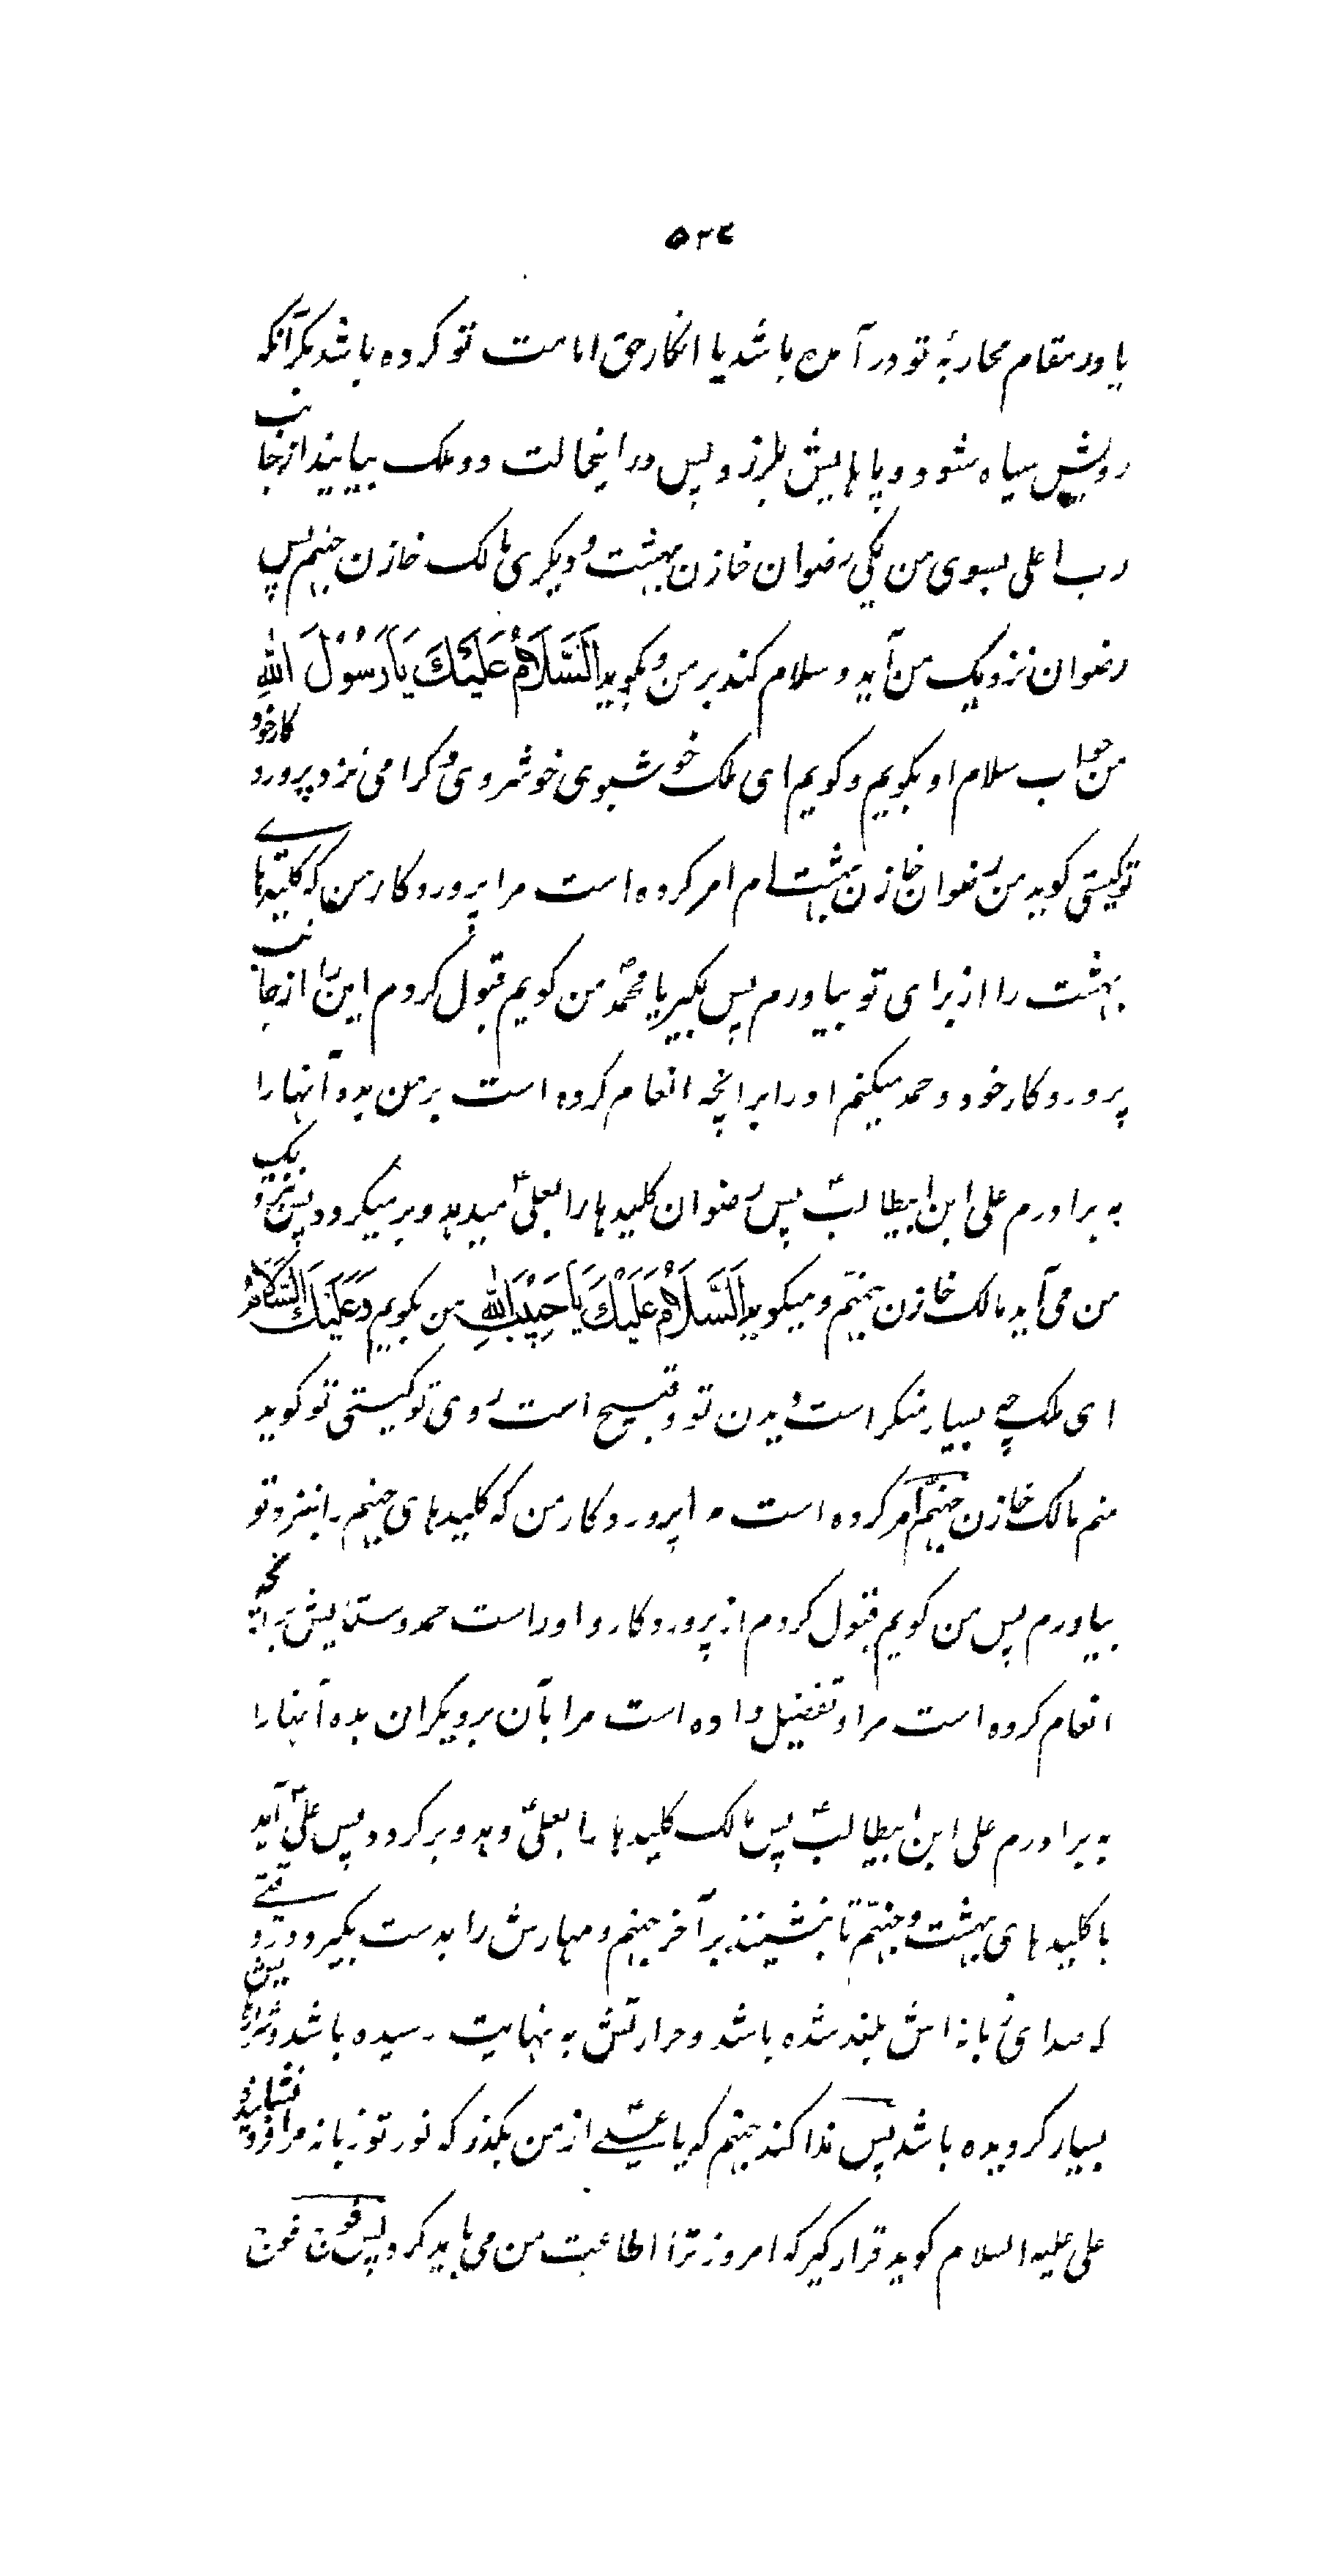 ۵۲۴
یا در مقام محاربهٔ تو در آمده باشد یا انکار حق امامت تو کرده باشد مگر آنکه
رویش سیاه شود و پاهایش بلرزد پس در اینحالت دو ملک بیایند از جانب
رب اعلی بسوی من یکی رضوان خازن بهشت و دیگری مالک خازن جهنم پس
رضوان نزدیک من آید و سلام کند بر من و گوید اَلسَّلَامُ عَلَیْكَ یَا رَسُوْلَ اللهِ
من جواب سلام او بگویم و گویم ای ملک خوشبوی خوشروی و گرامی نزد پروردگار خود
تو کیستی گوید من رضوان خازن بهشتم امر کرده است مرا پروردگار من که کلیدهای
بهشت را از برای تو بیاورم پس بگیر یا محمدؐ من گویم قبول کردم این را از جانب
پروردگار خود و حمد میکنم او را بر آنچه انعام کرده است بر من بده آنها را
به برادرم علی ابن ابیطالبؑ پس رضوان کلیدها را بعلیؑ میدهد و برمیگردد پس نزدیک
من می آید مالک خازن جهنّم و میگوید اَلسَّلَامُ عَلَیْكَ یَا حَبِیْبَ اللهِ من بگویم وَعَلَیْكَ السَّلَامُ
ای ملک چه بسیار منکر است دیدن تو و قبیح است روی تو کیستی تو گوید
منم مالک خازن جهنّم امر کرده است مرا پروردگار من که کلیدهای جهنم را بنزد تو
بیاورم پس من گویم قبول کردم از پروردگار و اوراست حمد و ستایش بر آنچه
انعام کرده است مرا و تفضیل داده است مرا بآن بر دیگران بده آنها را
به برادرم علی ابن ابیطالبؑ پس مالک کلیدها را بعلیؑ دهد و برگردد پس علیؑ آید
با کلیدهای بهشت و جهنّم تا بنشیند بر آخر جهنم و مهارش را بدست بگیرد در وقتے
که صدای زبانه اش بلند شده باشد و حرارتش به نهایت رسیده باشد و شرارهایش
بسیار گردیده باشد پس ندا کند جهنم که یا علیؑ از من بگذر که نور تو زبانه مرا فرو نشانید
علی علیه السلام گوید قرار گیر که امروز ترا اطاعت من می باید کرد پس فوج فوج